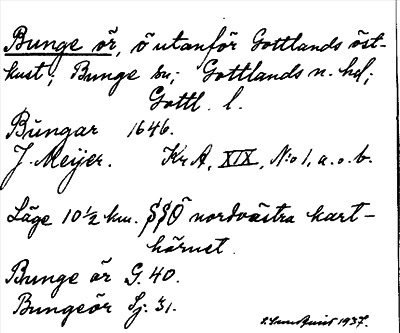 Bunge ör, ö utanför Gottlands öst-
kust; Bunge sn; Gottlands n. hd;
Gottl. l.
Bungar 1646.
J. Meijer. Kr A, XIX, N:o 1, a. o. b.
Läge 10½ km. SSÖ nordvästra kart-
hörnet.
Bunge ör G. 40.
Bungeör Sj. 31.
1937.